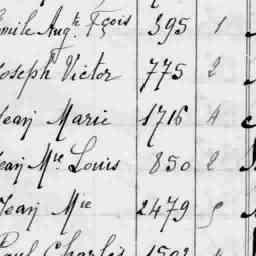 Emile Augte Fçois 395 1
Joseph Victor 775 2
Jean Marie 1716 4
Jean Mie Louis 850 2
Jean Mie 2479 5
Paul Charles